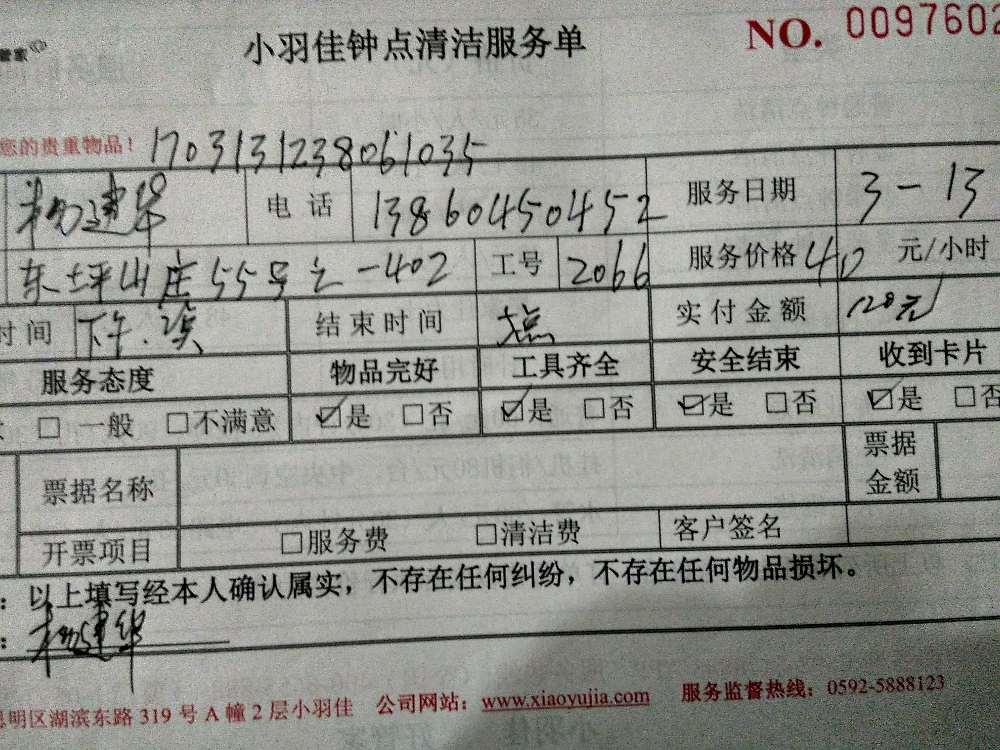 管家
小羽佳钟点清洁服务单
NO. 0097602
您的贵重物品！ 1703131238061035
杨建华 电话 13860450452 服务日期 3-13
东坪山庄55号之一402 工号 2066 服务价格 40 元/小时
时间 下午. 结束时间 点 实付金额 120元
服务态度 物品完好 工具齐全 安全结束 收到卡片
□ 一般 □不满意 ☑是 □否 ☑是 □否 ☑是 □否 ☑是 □否
票据名称 票据金额
开票项目 □服务费 □清洁费 客户签名
：以上填写经本人确认属实，不存在任何纠纷，不存在任何物品损坏。
：杨建华
思明区湖滨东路 319 号 A 幢 2 层小羽佳 公司网站：www.xiaoyujia.com 服务监督热线：0592-5888123